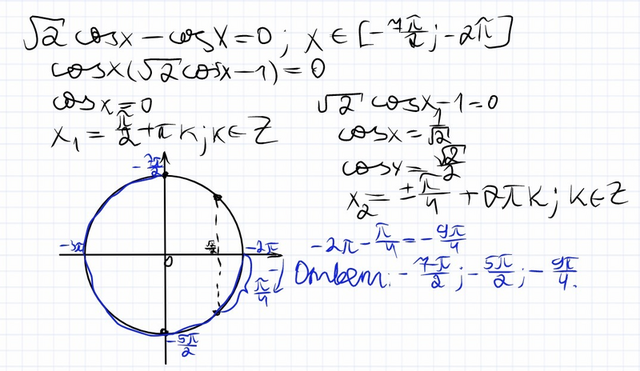 √2 cosx − cosx = 0 ; x ∈ [−7π/2 ; −2π]
cosx(√2 cosx − 1) = 0
cosx = 0
x₁ = π/2 + πk ; k ∈ Z
√2 cosx − 1 = 0
cosx = 1/√2
cosx = √2/2
x₂ = ±π/4 + 2πk ; k ∈ Z
−7π/2
−3π
0
√2/2
−2π
π/4
−5π/2
−2π − π/4 = −9π/4
Ответ: −7π/2 ; −5π/2 ; −9π/4.